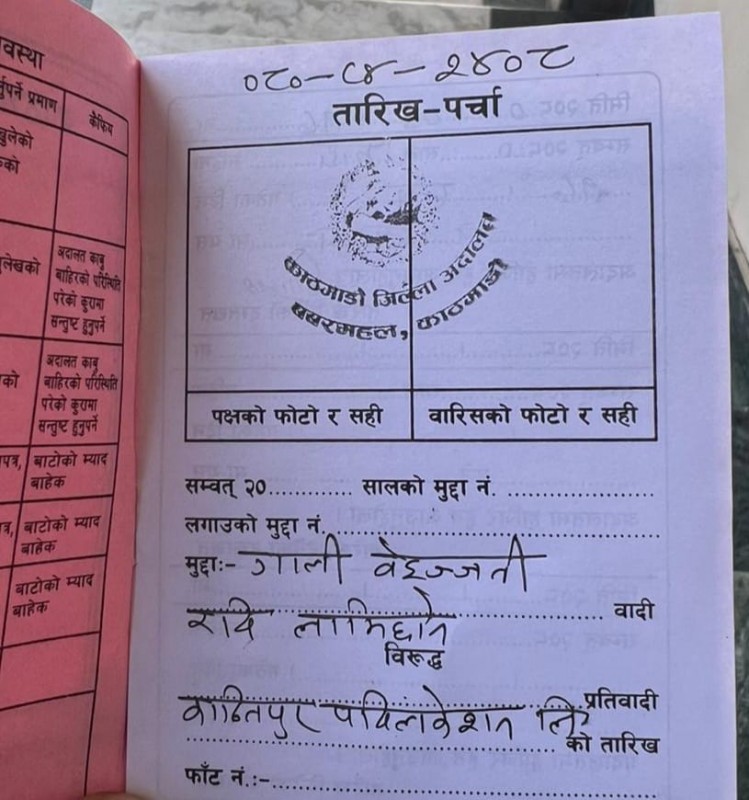 वस्था
र्नुपर्ने प्रमाण
कैफियत
खुलेको
को
लेखको
अदालत काबु
बाहिरको परिस्थिति
परेको कुरामा
सन्तुष्ट हुनुपर्ने
को
अदालत काबु
बाहिरको परिस्थिति
परेको कुरामा
सन्तुष्ट हुनुपर्ने
पत्र,
बाटोको म्याद
बाहेक
त्र,
बाटोको म्याद
बाहेक
बाटोको म्याद
बाहेक
०८०-८४-२४०८
तारिख-पर्चा
काठमाडौं जिल्ला अदालत
बबरमहल, काठमाडौं
पक्षको फोटो र सही
वारिसको फोटो र सही
सम्वत् २०............ सालको मुद्दा नं. ......................
लगाउको मुद्दा नं. ......................
मुद्दाः- गाली वेइज्जती
रवि लामिछाने ...................... वादी
विरूद्ध
कान्तिपुर पब्लिकेशन लि. प्रतिवादी
...................... को तारिख
फाँट नं.:-......................